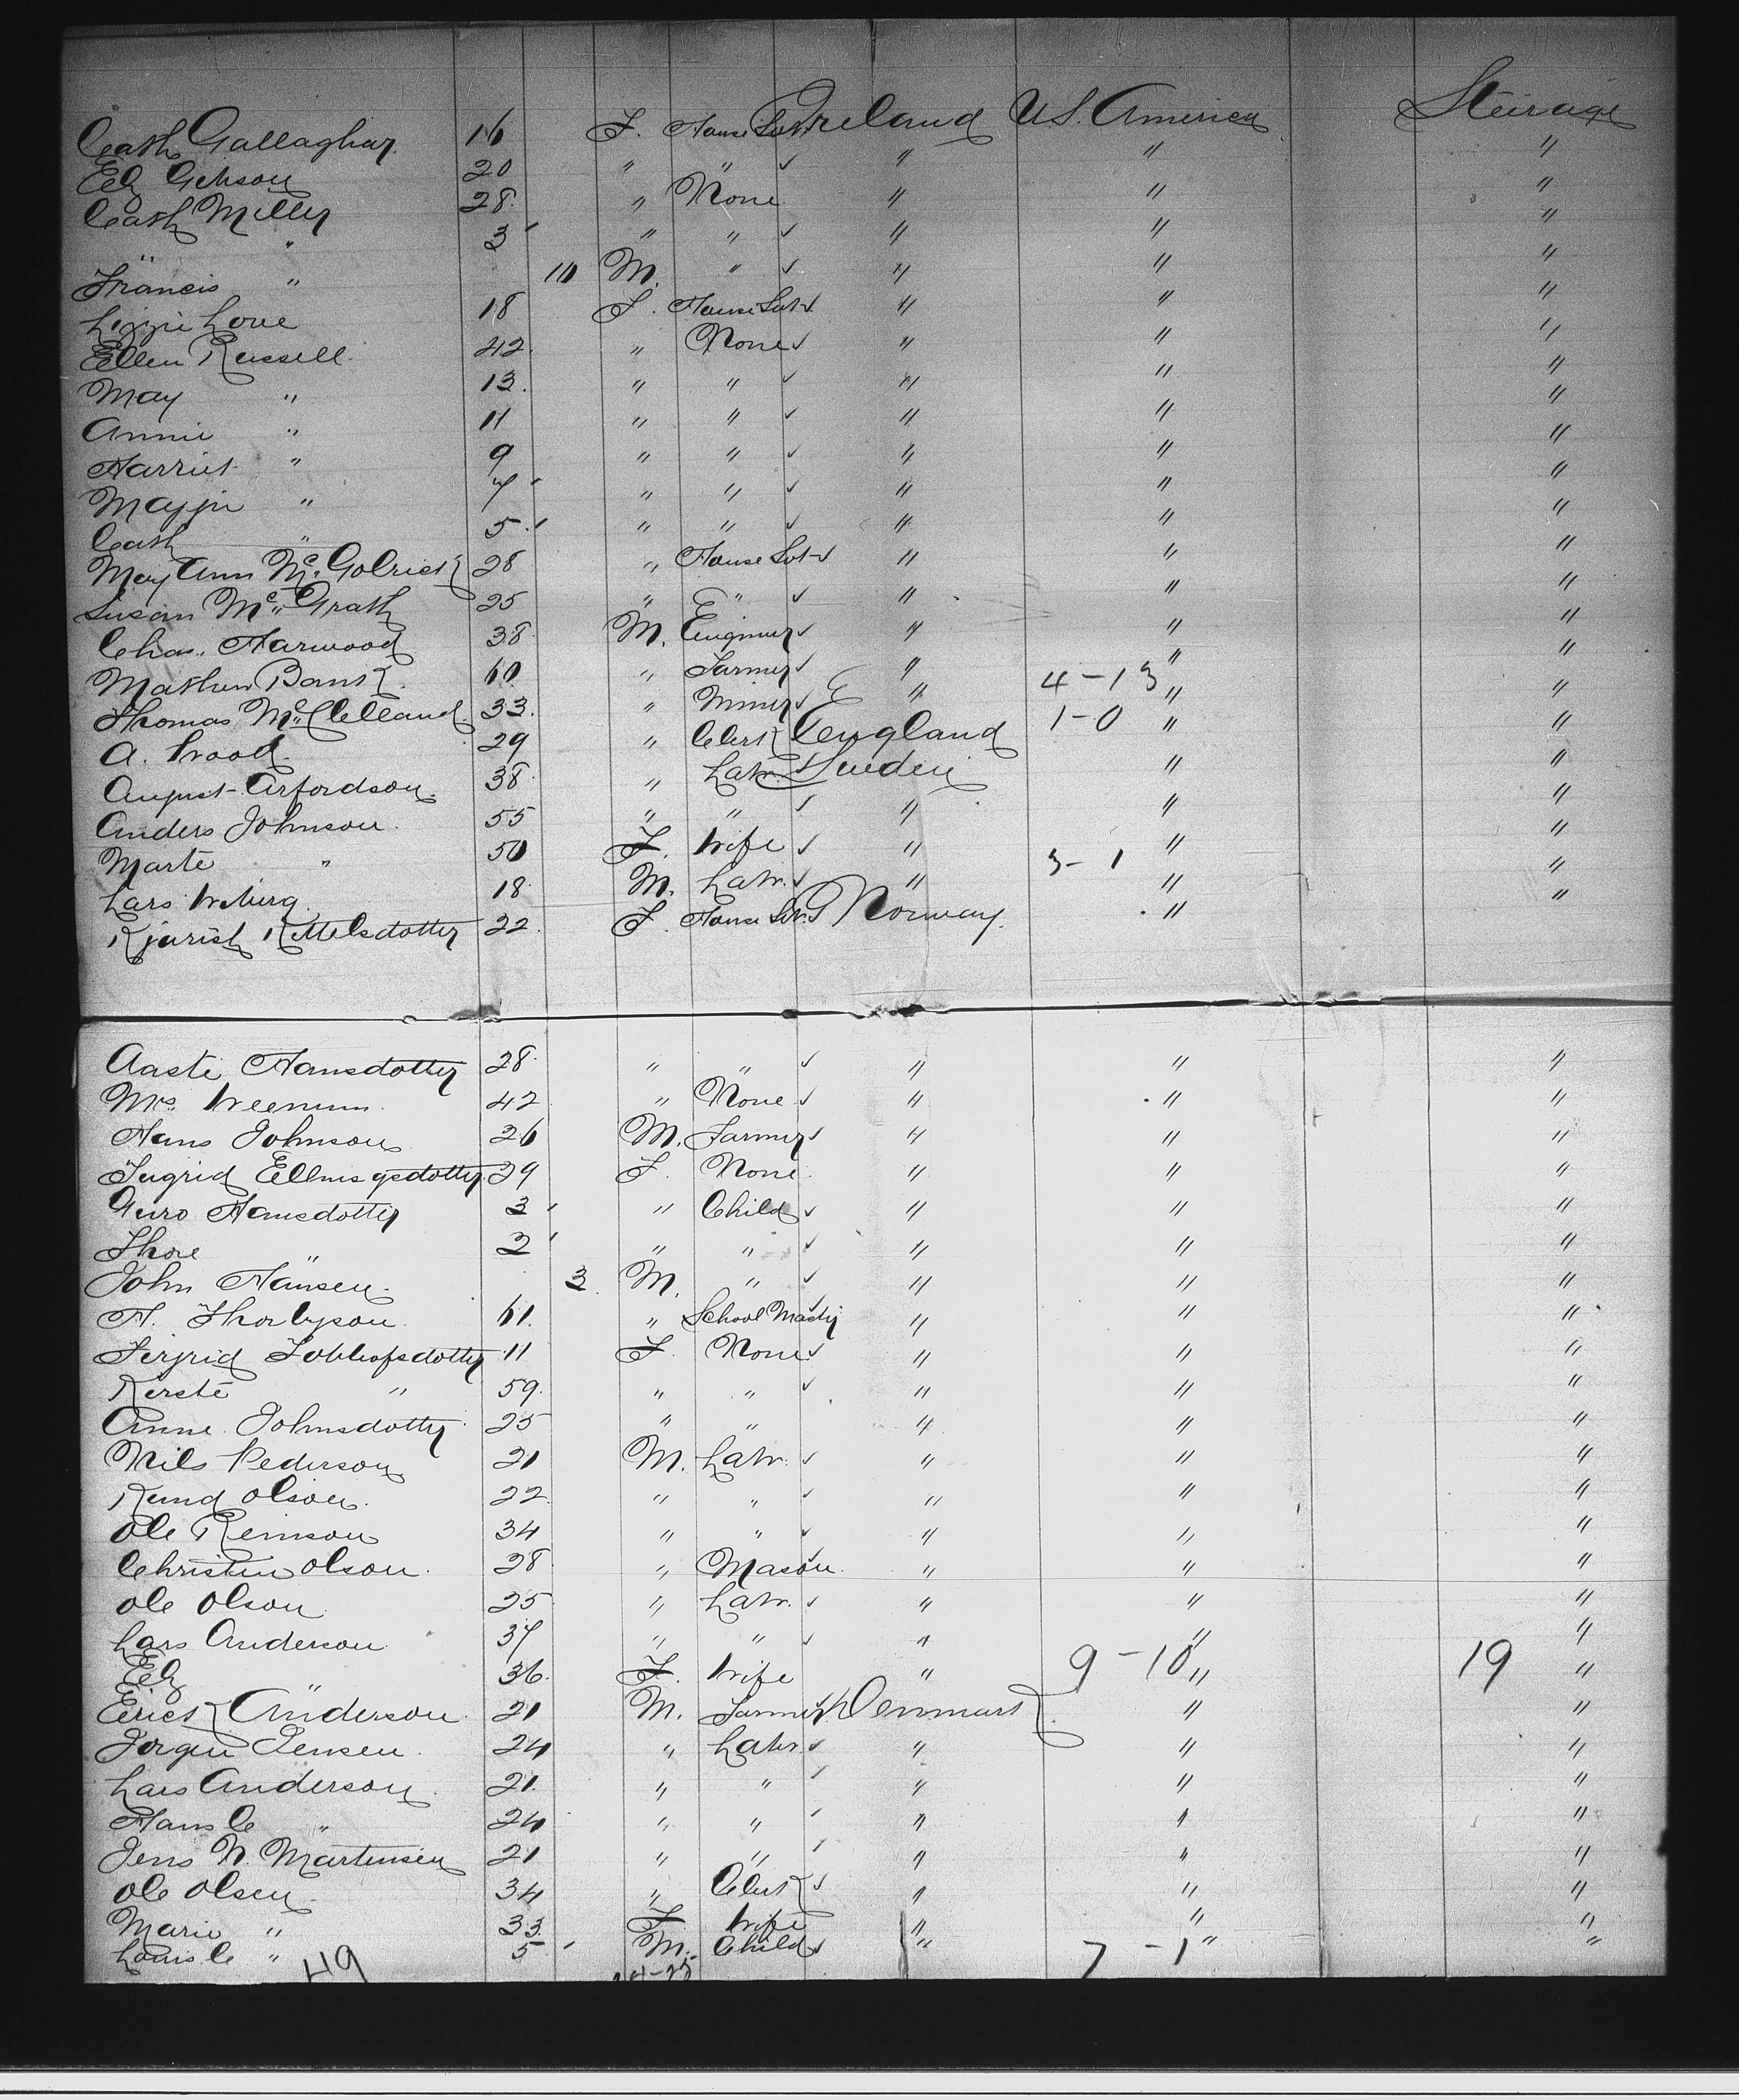 Cath Gallaghar 16 F. House Svt Ireland U.S. America Steirage
Eliz Gibson 20 " " " " "
Cath Miller 28 " None " " "
" " 3 " " " " "
Francis " 10 M. " " " "
Lizzie Love 18 F. House Svt " " "
Ellen Russell 42 " None " " "
May " 13 " " " " "
Annie " 11 " " " " "
Harriet " 9 " " " " "
" 7 " " " " "
Cath " 5 " " " " "
May Ann McGolrick 28 " House Svt " " "
Susan McGrath 25 " " " " "
Chas. Harwood 38 M. Engineer " " "
Mathew Bank 60 " Farmer " 4-13 " "
Thomas McClelland 33 " Miner " " "
A. Wood 29 " Clerk England 1-0 " "
August Arfordson 38 " Labr. Sweden " "
Anders Johnson 55 " " " " "
Marte " 50 F. Wife " " "
Lars Wiberg 18 M. Labr. " 3-1 " "
Kjerist Kittelsdotter 22 F. House Svt. Norway. " "
Aaste Hansdotter 28 " " " " "
Mrs. 42 " None " " "
Hans Johnson 26 M. Farmer " " "
Ingrid Ellingsdotter 29 F. None " " "
Guro Hansdotter 3 " Child " " "
Thore " 2 " " " " "
John Hansen 3 M. " " " "
H. 61 " School Master " " "
11 F. None " " "
Kerste " 59 " " " " "
Anne Johnsdotter 25 " " " " "
Nils Pederson 21 M. Labr. " " "
Knud Olson 22 " " " " "
Ole Reinson 34 " " " " "
Christen Olson 28 " Mason " " "
Ole Olson 25 " Labr. " " "
Lars Anderson 37 " " " " "
Eliz " 36 F. Wife " 9-10 " 19 "
Erick Anderson 21 M. Farmer Denmark " "
Jorgen Jensen 24 " Labr. " " "
Lars Anderson 21 " " " " "
Hans C " 24 " " " " "
Jens N. Martensen 21 " " " " "
Ole Olsen 34 " Clerk " " "
Marie " 33 F. Wife " " "
Louis C " 5 M. Child " 7-1 " "
49 24-25